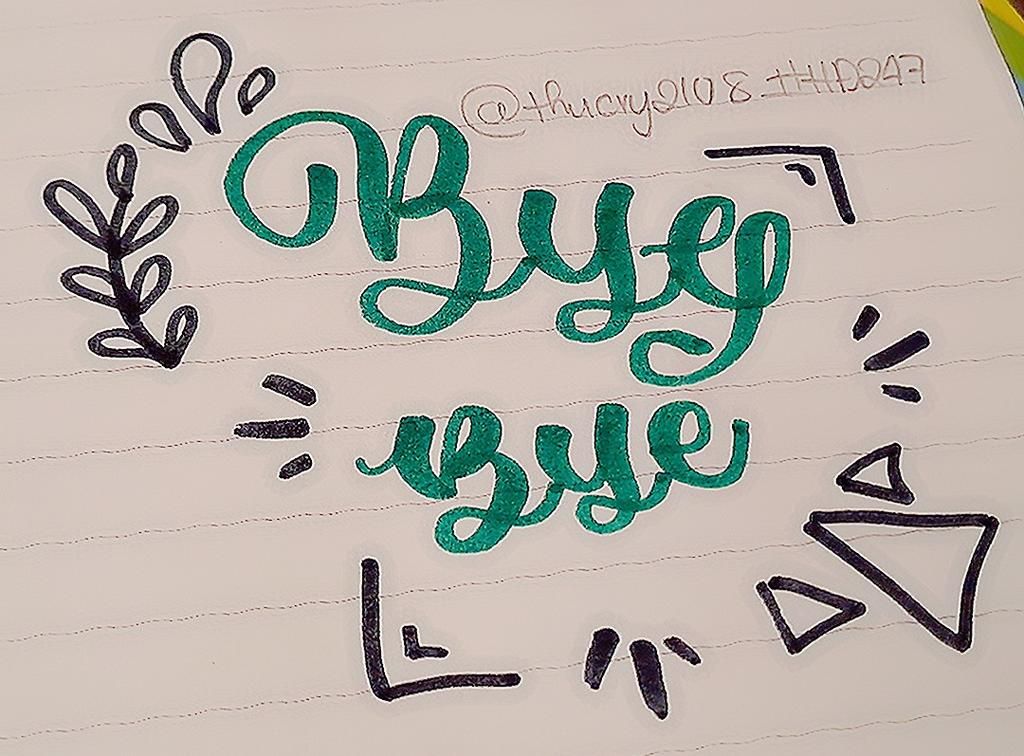 @thucry2108_HHD247
Bye
Bye